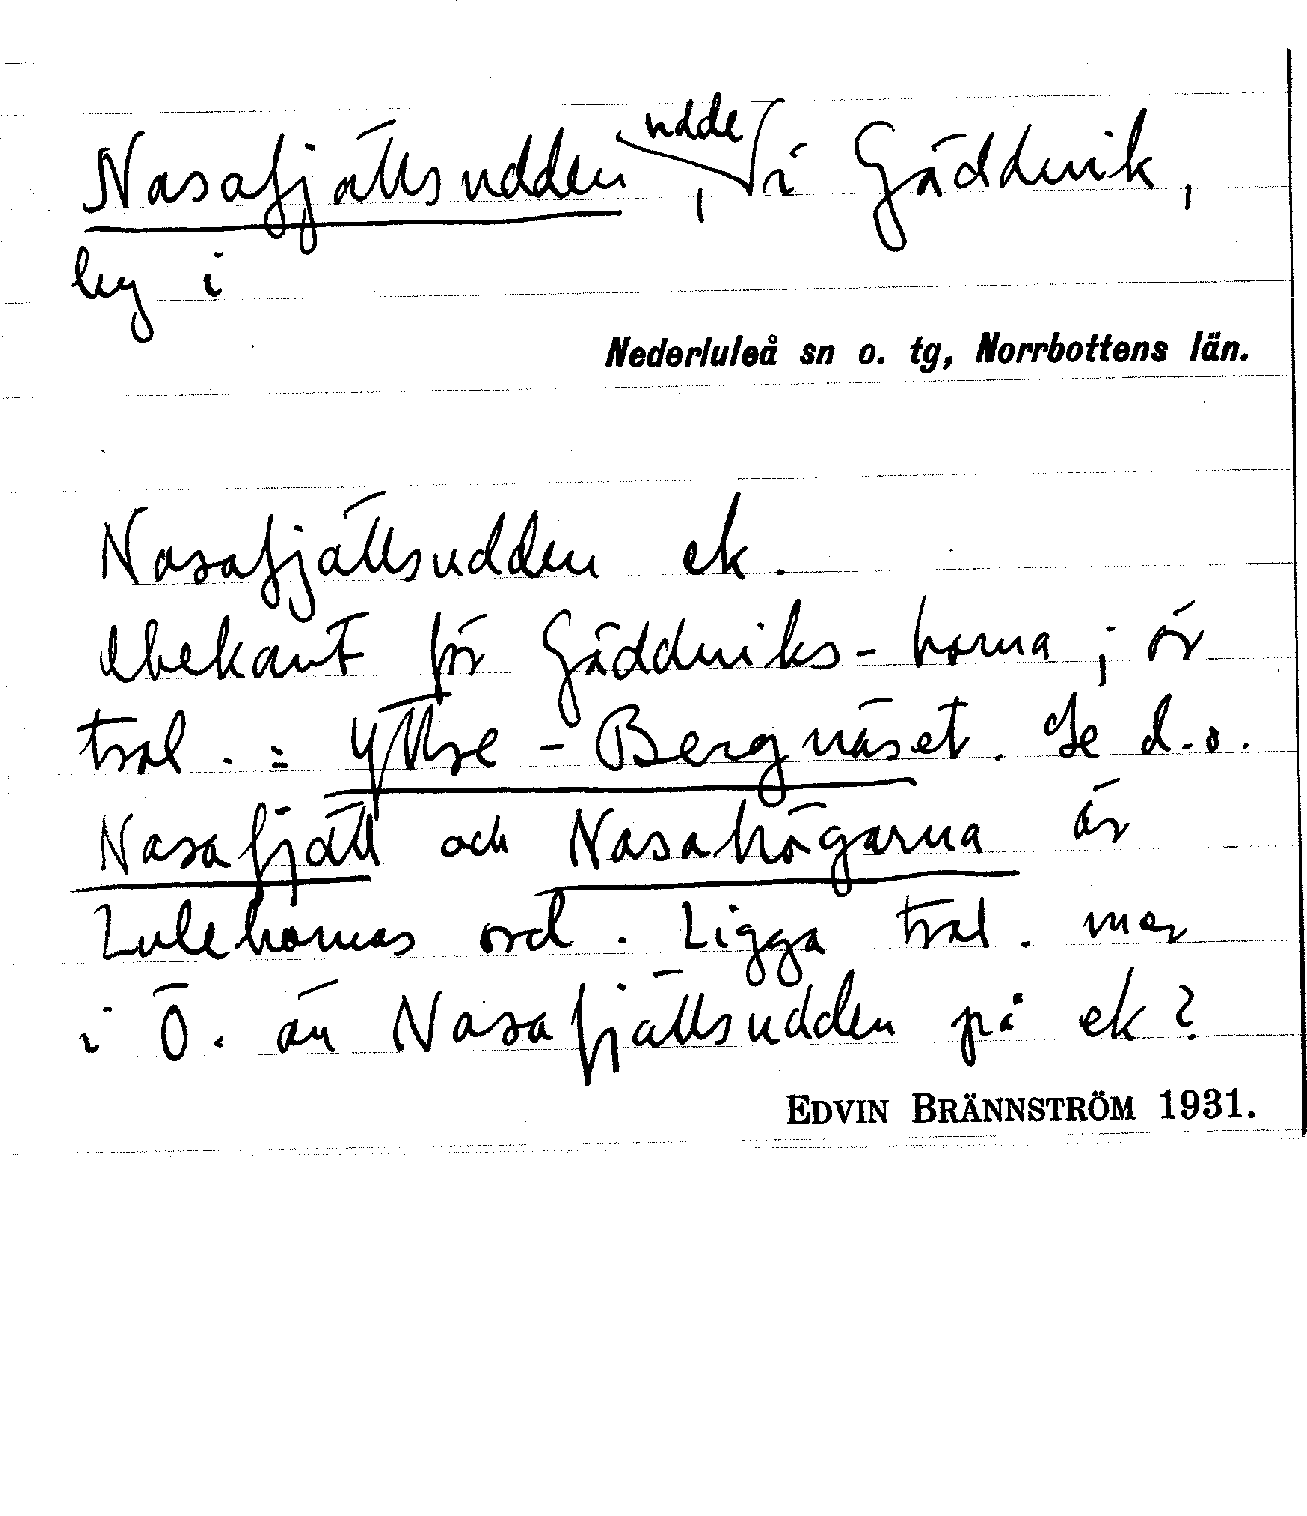 Nasafjällsudden, udde i Gäddvik,
by i
Nederluleå sn o. tg, Norrbottens län.
Nasafjällsudden ek.
Obekant för Gäddviks-borna; är
trol. = Yttre-Bergnäset. Se d.o.
Nasafjäll och Nasahögarna är
Lulebornas ord. Ligga trol. mer
i Ö. än Nasafjällsudden på ek?
EDVIN BRÄNNSTRÖM 1931.